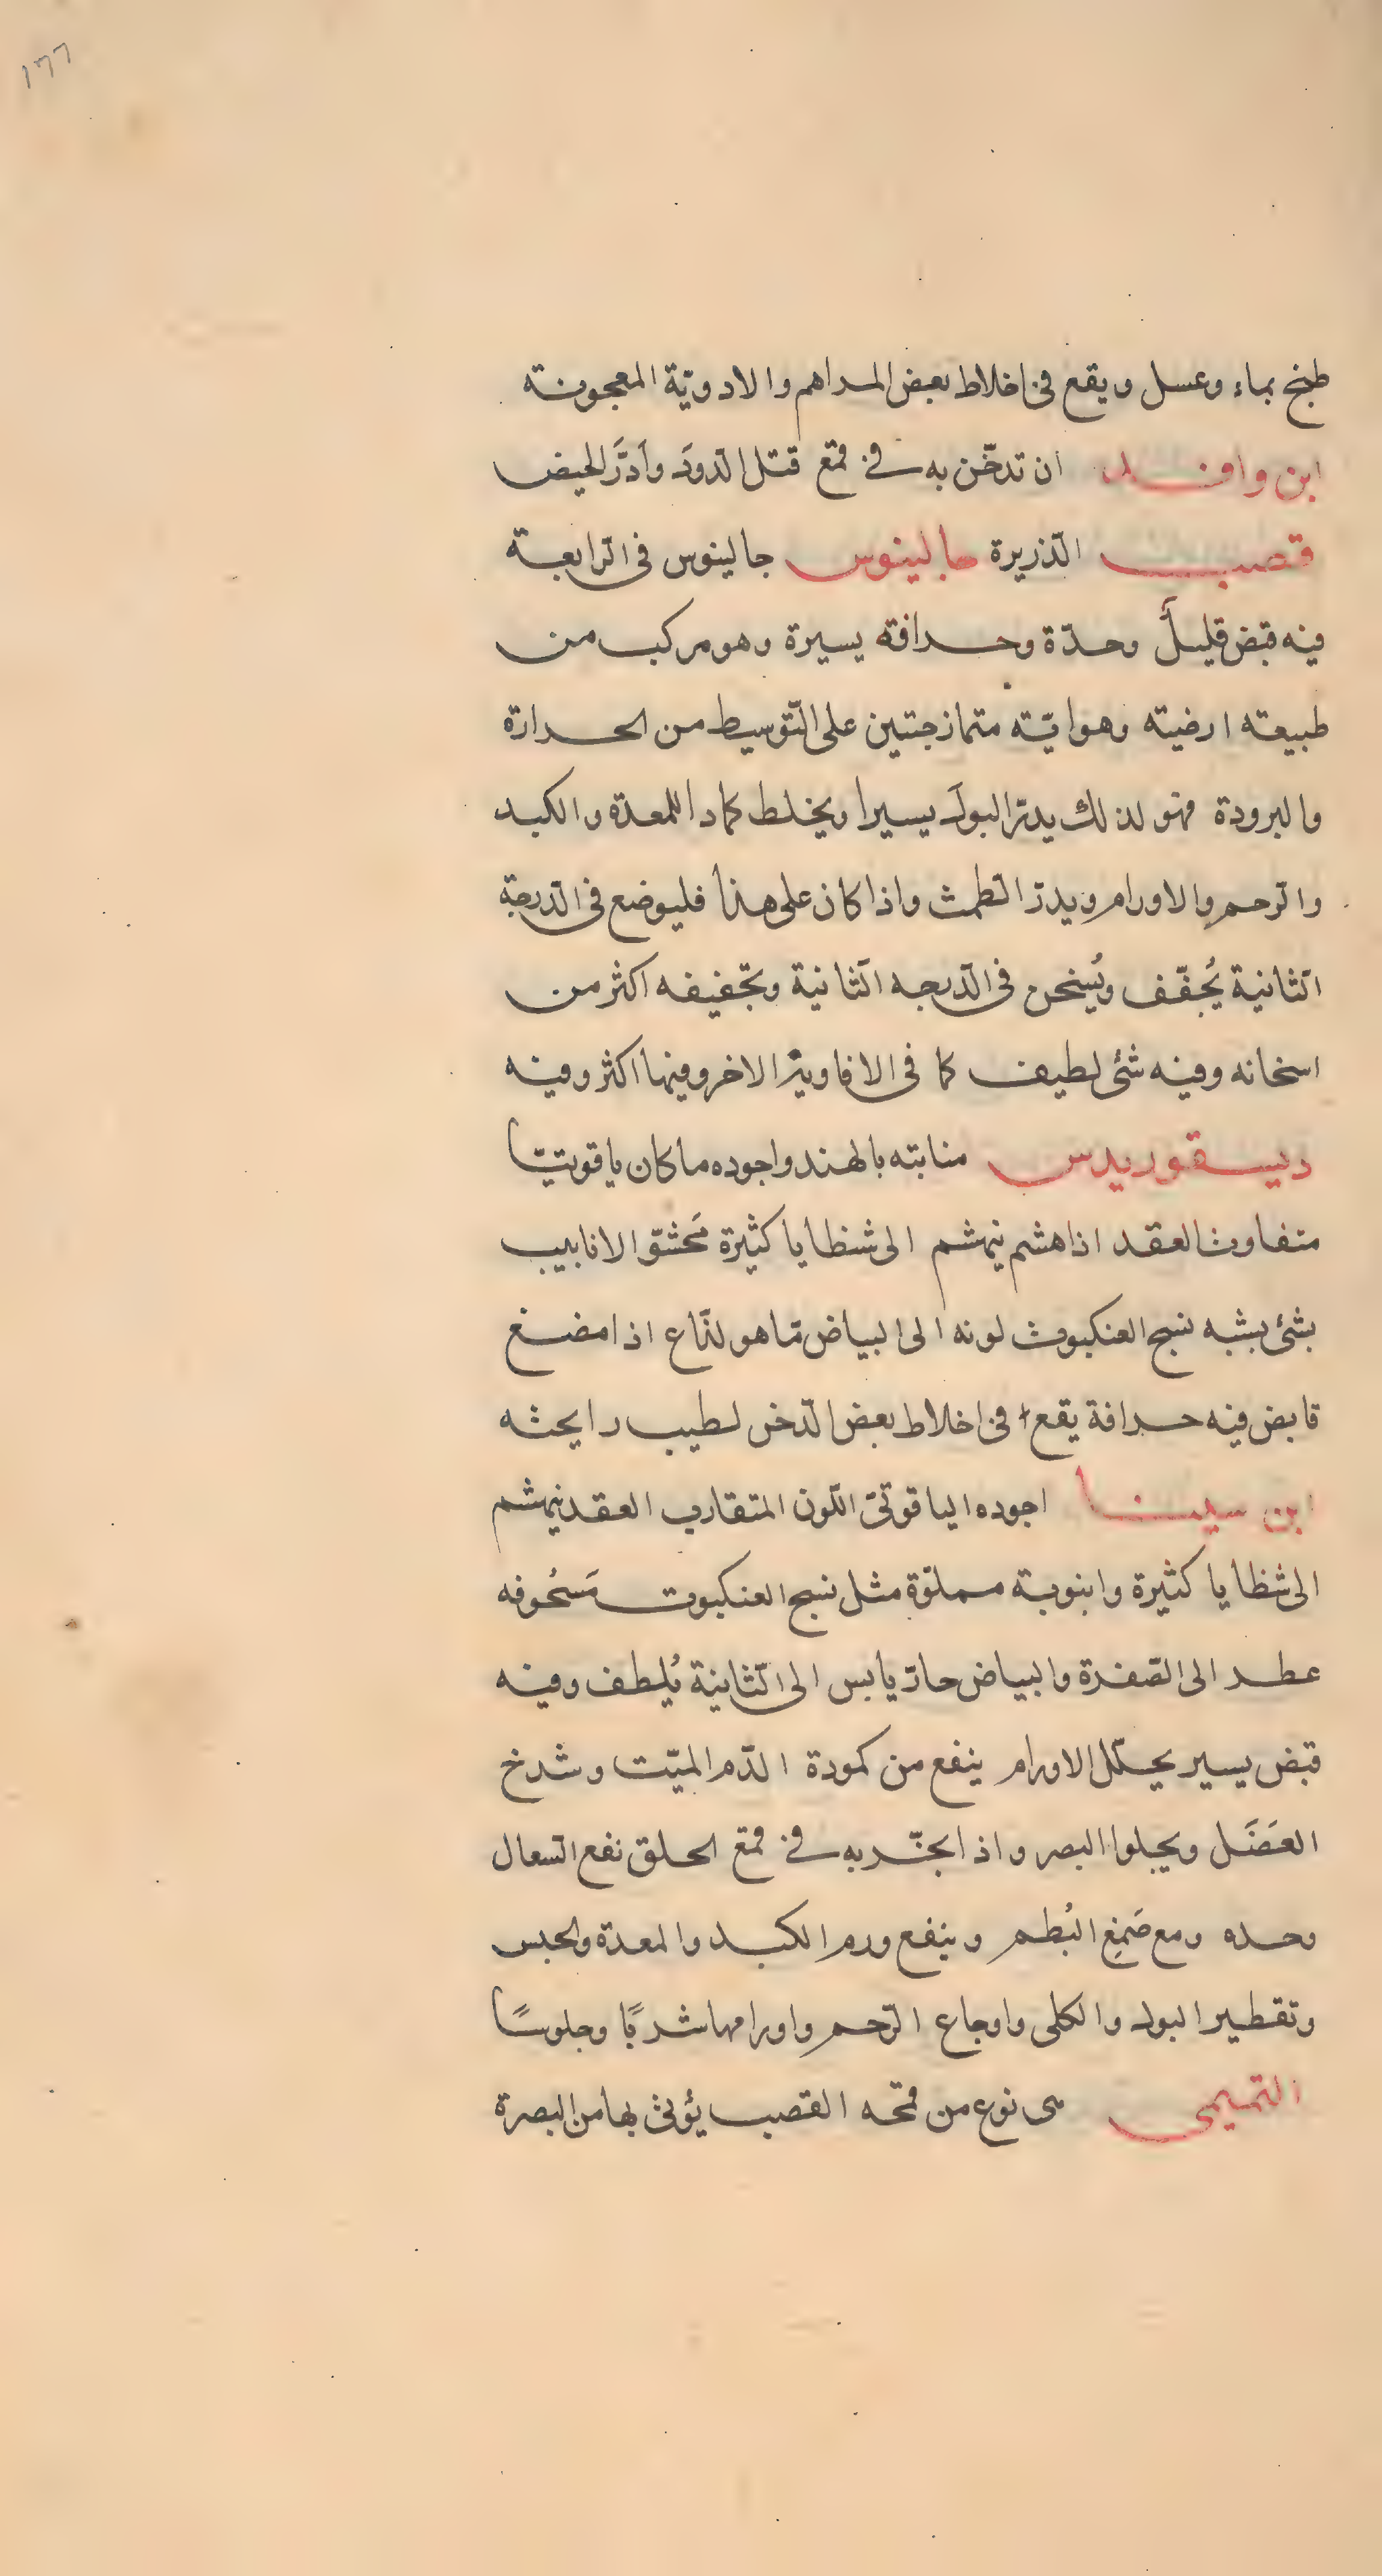 ١٦٦
طبخ بماء وعسل ويقع فى اخلاط بعض المراهم والادويّة المعجونته
ابن وافد ان تدخّن به فى قمع قتل الدّودَ وادَرَّ الحيض
قصب الذّريرة جالينوس جالينوس فى الرّابعة
فيه قبض قليلٌ وحدّة وحرافته يسيرة وهو مركب من
طبيعته ارضيته وهوايّته متمازجتين على التّوسيط من الحرارة
والبرودة فهو لذلك يدرّ البولَ يسيرا ويخلط كمادا للمعدة والكبد
والرّحم والاورام ويدرّ الطّمث واذا كان على هذا فليوضع فى الدّرجة
الثّانية يُجفّف ويُسخن فى الدّرجه الثّانية وتجفيفه اكثر من
اسخانه وفيه شئ لطيف كما فى الافاويه الاخر وفيها اكثر وفيه
ديسقوريدس منابته بالهند واجوده ما كان ياقوتيّا
متفاوت العقد اذا هشم ينهشم الى شظايا كثيرة مَحشوّ الانابيب
بشئ يشبه نسج العنكبوت لونه الى البياض ما هو لذّاع اذا مضغ
قابض فيه حرافة يقع فى اخلاط بعض الدّخن لطيب رايحته
ابن سينا اجوده الياقوتىّ اللّون المتقارب العقد ينهشم
الى شظايا كثيرة وانبوبة مملوّة مثل نسج العنكبوت مَسحُوقه
عطر الى الصّفرة والبياض حارّ يابس الى الثّانية يُلطف وفيه
قبض يسير يحلّل الاورام ينفع من كمودة الدّم الميّت وشدخ
العَضَل ويجلوا البصر واذا بخّر به فى قمع الحلق نفع السّعال
وحده ومع صَمغ البُطم وينفع ورم الكبد والمعدة والحبس
وتقطير البول والكلى واوجاع الرّحم واورامها شربًا وجلوسًا
التميمى هى نوع من قمحه القصب يؤتى بها من البصرة